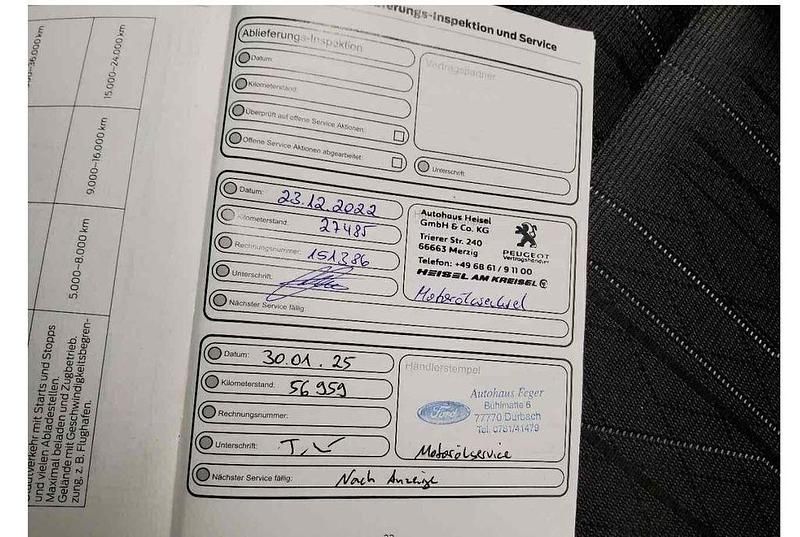 erungs-Inspektion und Service
15.000–24.000 km
9.000–16.000 km
5.000–8.000 km
verkehr mit Starts und Stopps
und vielen Abladestellen.
Maximal beladen und Zugbetrieb.
Gelände mit Geschwindigkeitsbegren-
zung, z. B. Flughäfen.
Ablieferungs-Inspektion
Datum:
Kilometerstand:
Überprüft auf offene Service Aktionen:
Offene Service Aktionen abgearbeitet:
Vertragspartner
Unterschrift:
Datum: 23.12.2022
Kilometerstand: 27485
Rechnungsnummer: 151386
Unterschrift:
Nächster Service fällig:
Autohaus Heisel
GmbH & Co. KG
Trierer Str. 240
66663 Merzig
PEUGEOT
Vertragshändler
Telefon: +49 68 61 / 9 11 00
HEISEL AM KREISEL
Motorölwechsel
Datum: 30.01.25
Kilometerstand: 56959
Rechnungsnummer:
Unterschrift:
Nächster Service fällig: Nach Anzeige
Händlerstempel
Ford
Autohaus Feger
Bühlmatte 6
77770 Durbach
Tel. 0781/41479
Motorölservice